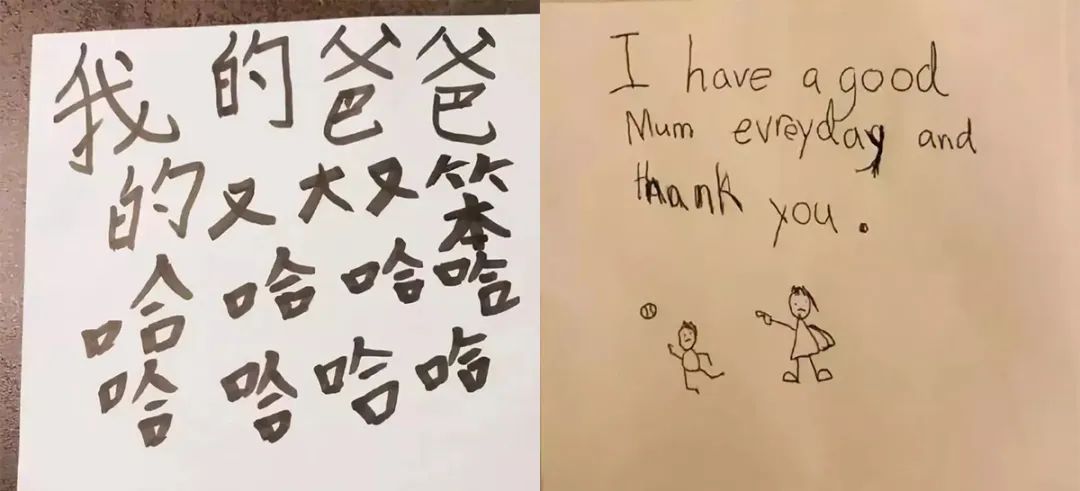 我的爸爸
的又大又笨
哈哈哈哈
哈哈哈哈
I have a good
Mum evreyday and
thank you.